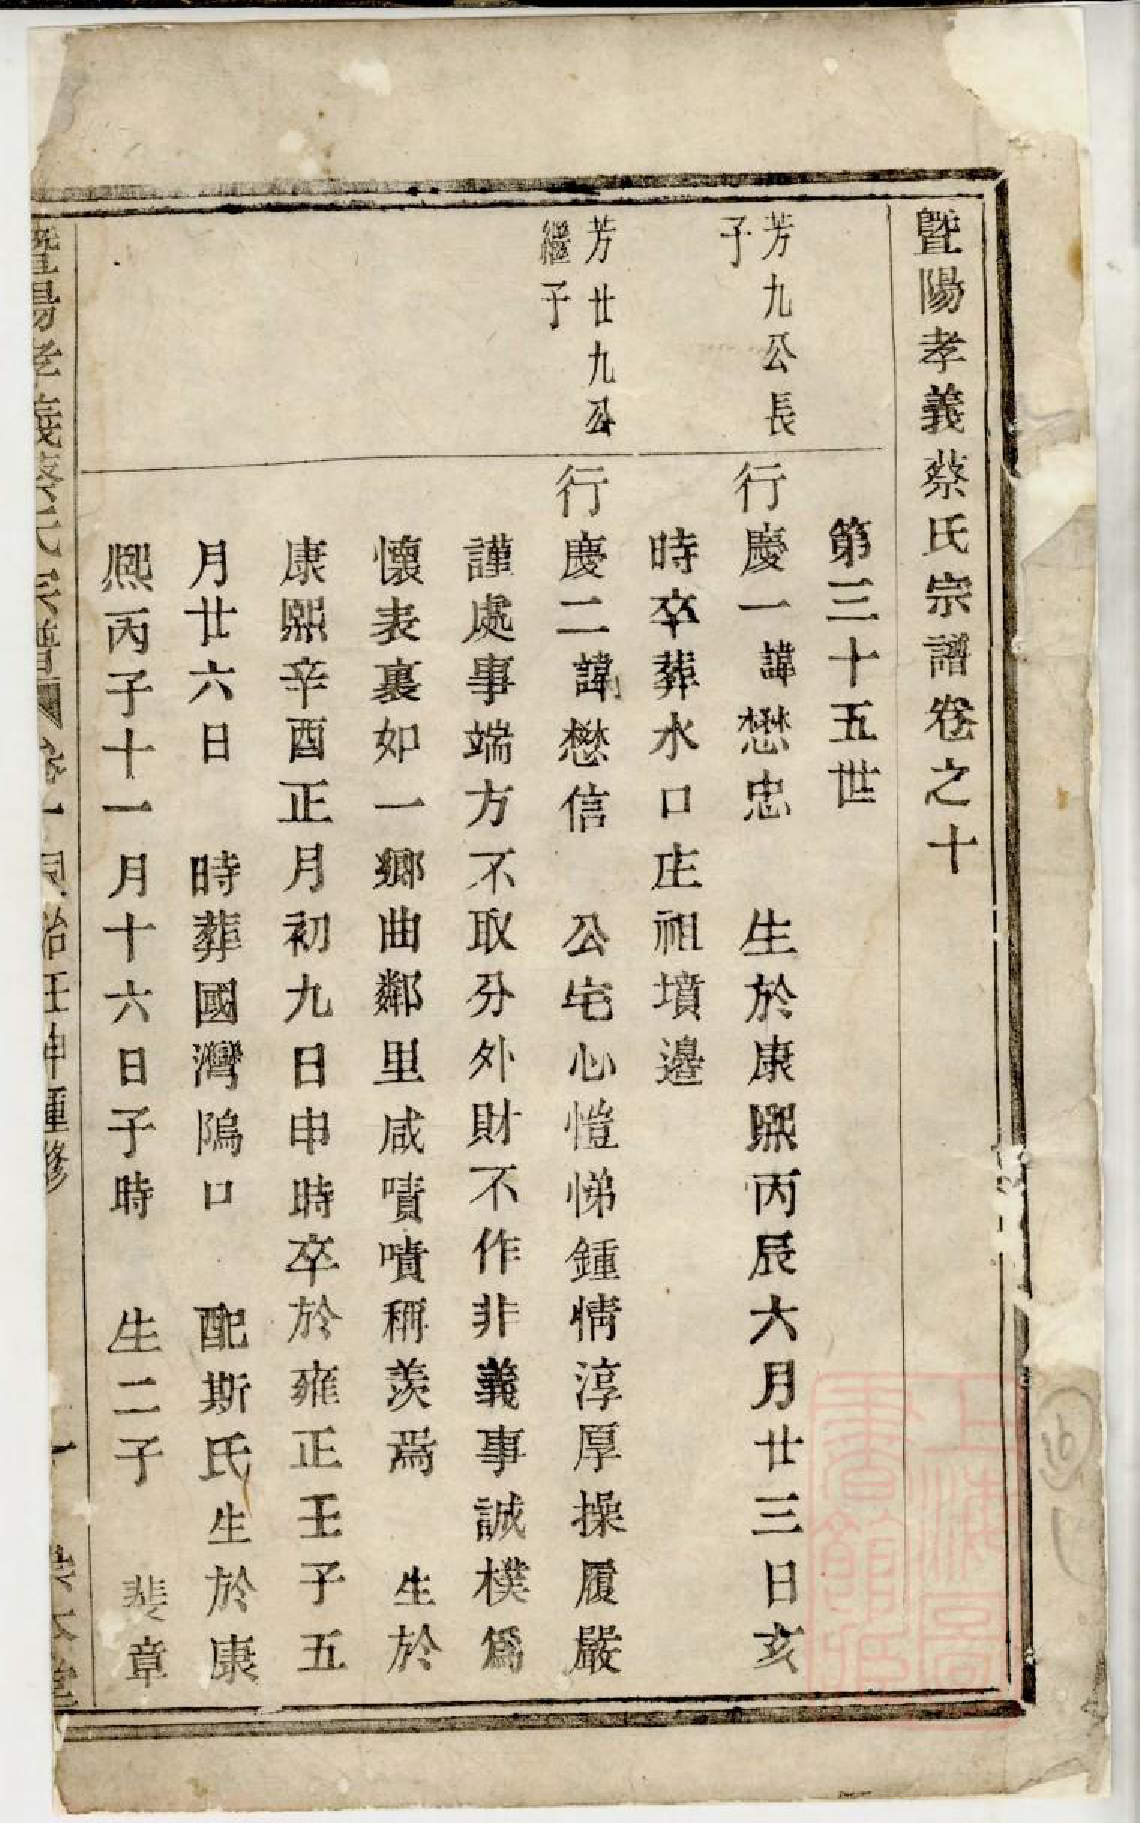 暨陽孝義蔡氏宗譜卷之十
第三十五世
芳九公長
子
行慶一諱懋忠 生於康熙丙辰六月廿三日亥
時卒葬水口庄祖墳邉
芳廿九公
繼子
行慶二諱懋信 公宅心愷悌鍾情淳厚操履嚴
謹處事端方不取分外財不作非義事誠樸爲
懷表裏如一鄉曲鄰里咸嘖嘖稱羨焉 生於
康熙辛酉正月初九日申時卒於雍正壬子五
月廿六日 時葬國灣隖口 配斯氏生於康
熙丙子十一月十六日子時 生二子 斐章
暨陽孝義蔡氏宗譜 卷十 同治壬申重修
上海圖書館藏